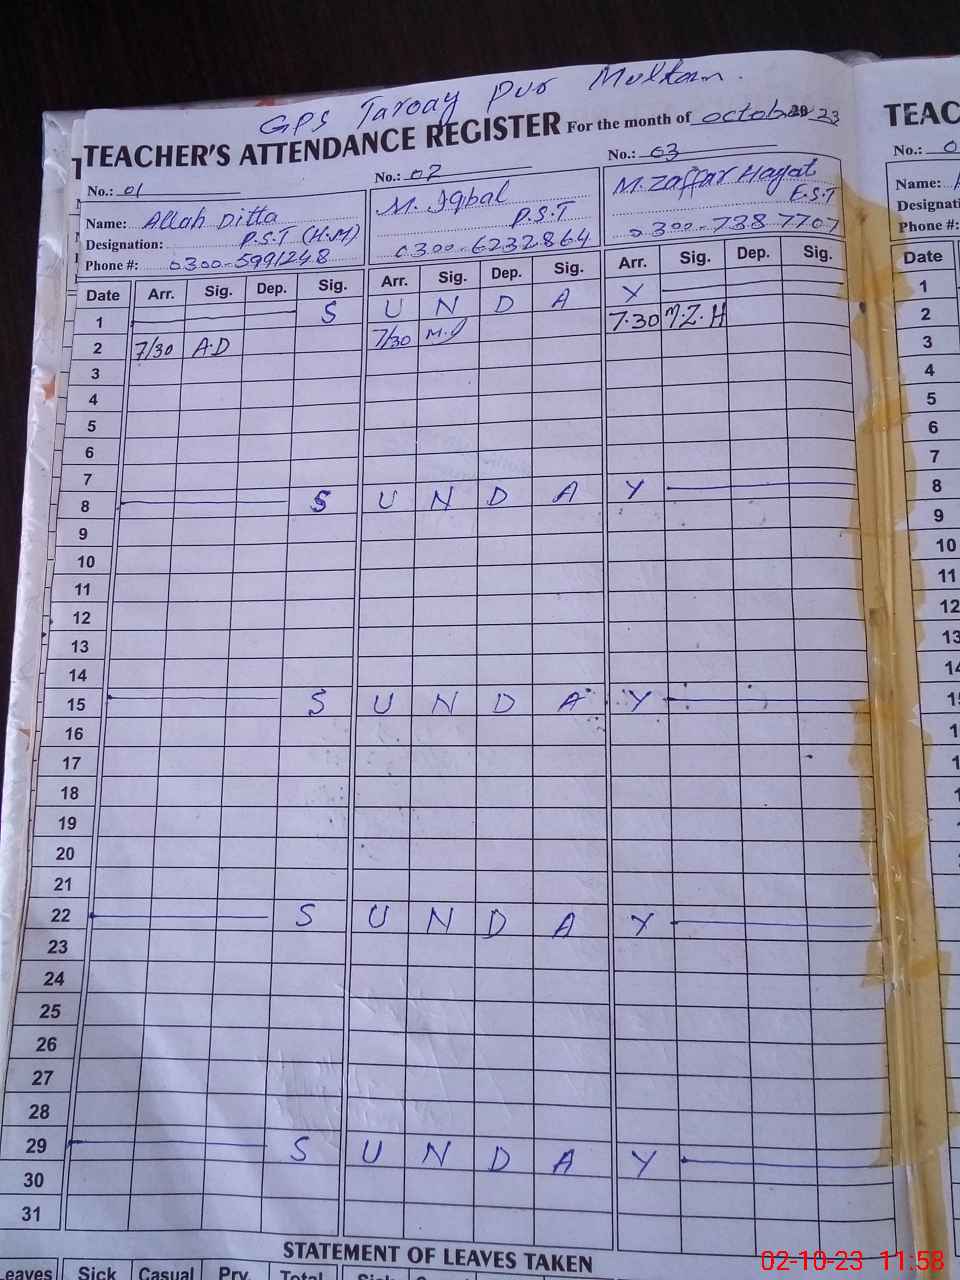 GPS Taroay Pur Multan.
TEACHER'S ATTENDANCE REGISTER For the month of October 2023
No.: 01 No.: 02 No.: 03
Name: Allah Ditta M. Iqbal M. Zaffar Hayat
Designation: P.S.T (H.M) P.S.T E.S.T
Phone #: 0300-5991248 0300-6232864 0300-7387707
Date Arr. Sig. Dep. Sig. Arr. Sig. Dep. Sig. Arr. Sig. Dep. Sig.
1 S U N D A Y
2 7/30 A.D 7/30 M.I 7.30 M.Z.H
3
4
5
6
7
8 S U N D A Y
9
10
11
12
13
14
15 S U N D A Y
16
17
18
19
20
21
22 S U N D A Y
23
24
25
26
27
28
29 S U N D A Y
30
31
STATEMENT OF LEAVES TAKEN
Leaves Sick Casual Prv. Total
TEAC
No.: 0
Name:
Designati
Phone #:
Date
1
2
3
4
5
6
7
8
9
10
11
12
13
14
02-10-23 11:58